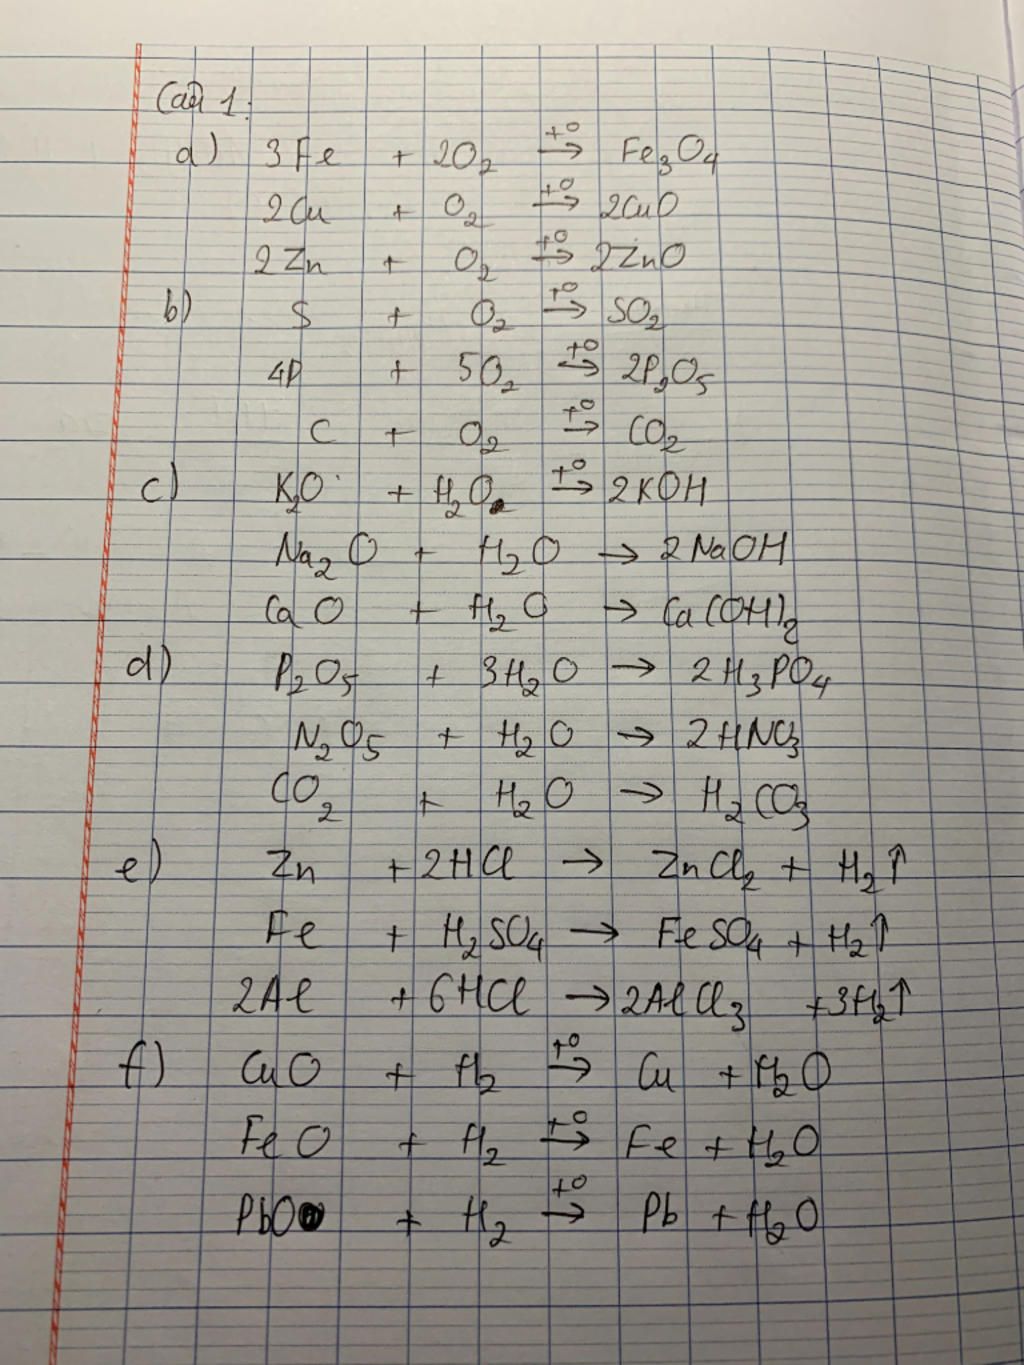 Câu 1:
a) 3Fe + 2O₂ →(t⁰) Fe₃O₄
2Cu + O₂ →(t⁰) 2CuO
2Zn + O₂ →(t⁰) 2ZnO
b) S + O₂ →(t⁰) SO₂
4P + 5O₂ →(t⁰) 2P₂O₅
C + O₂ →(t⁰) CO₂
c) K₂O + H₂O →(t⁰) 2KOH
Na₂O + H₂O → 2NaOH
CaO + H₂O → Ca(OH)₂
d) P₂O₅ + 3H₂O → 2H₃PO₄
N₂O₅ + H₂O → 2HNO₃
CO₂ + H₂O → H₂CO₃
e) Zn + 2HCl → ZnCl₂ + H₂↑
Fe + H₂SO₄ → FeSO₄ + H₂↑
2Al + 6HCl → 2AlCl₃ + 3H₂↑
f) CuO + H₂ →(t⁰) Cu + H₂O
FeO + H₂ →(t⁰) Fe + H₂O
PbO + H₂ →(t⁰) Pb + H₂O